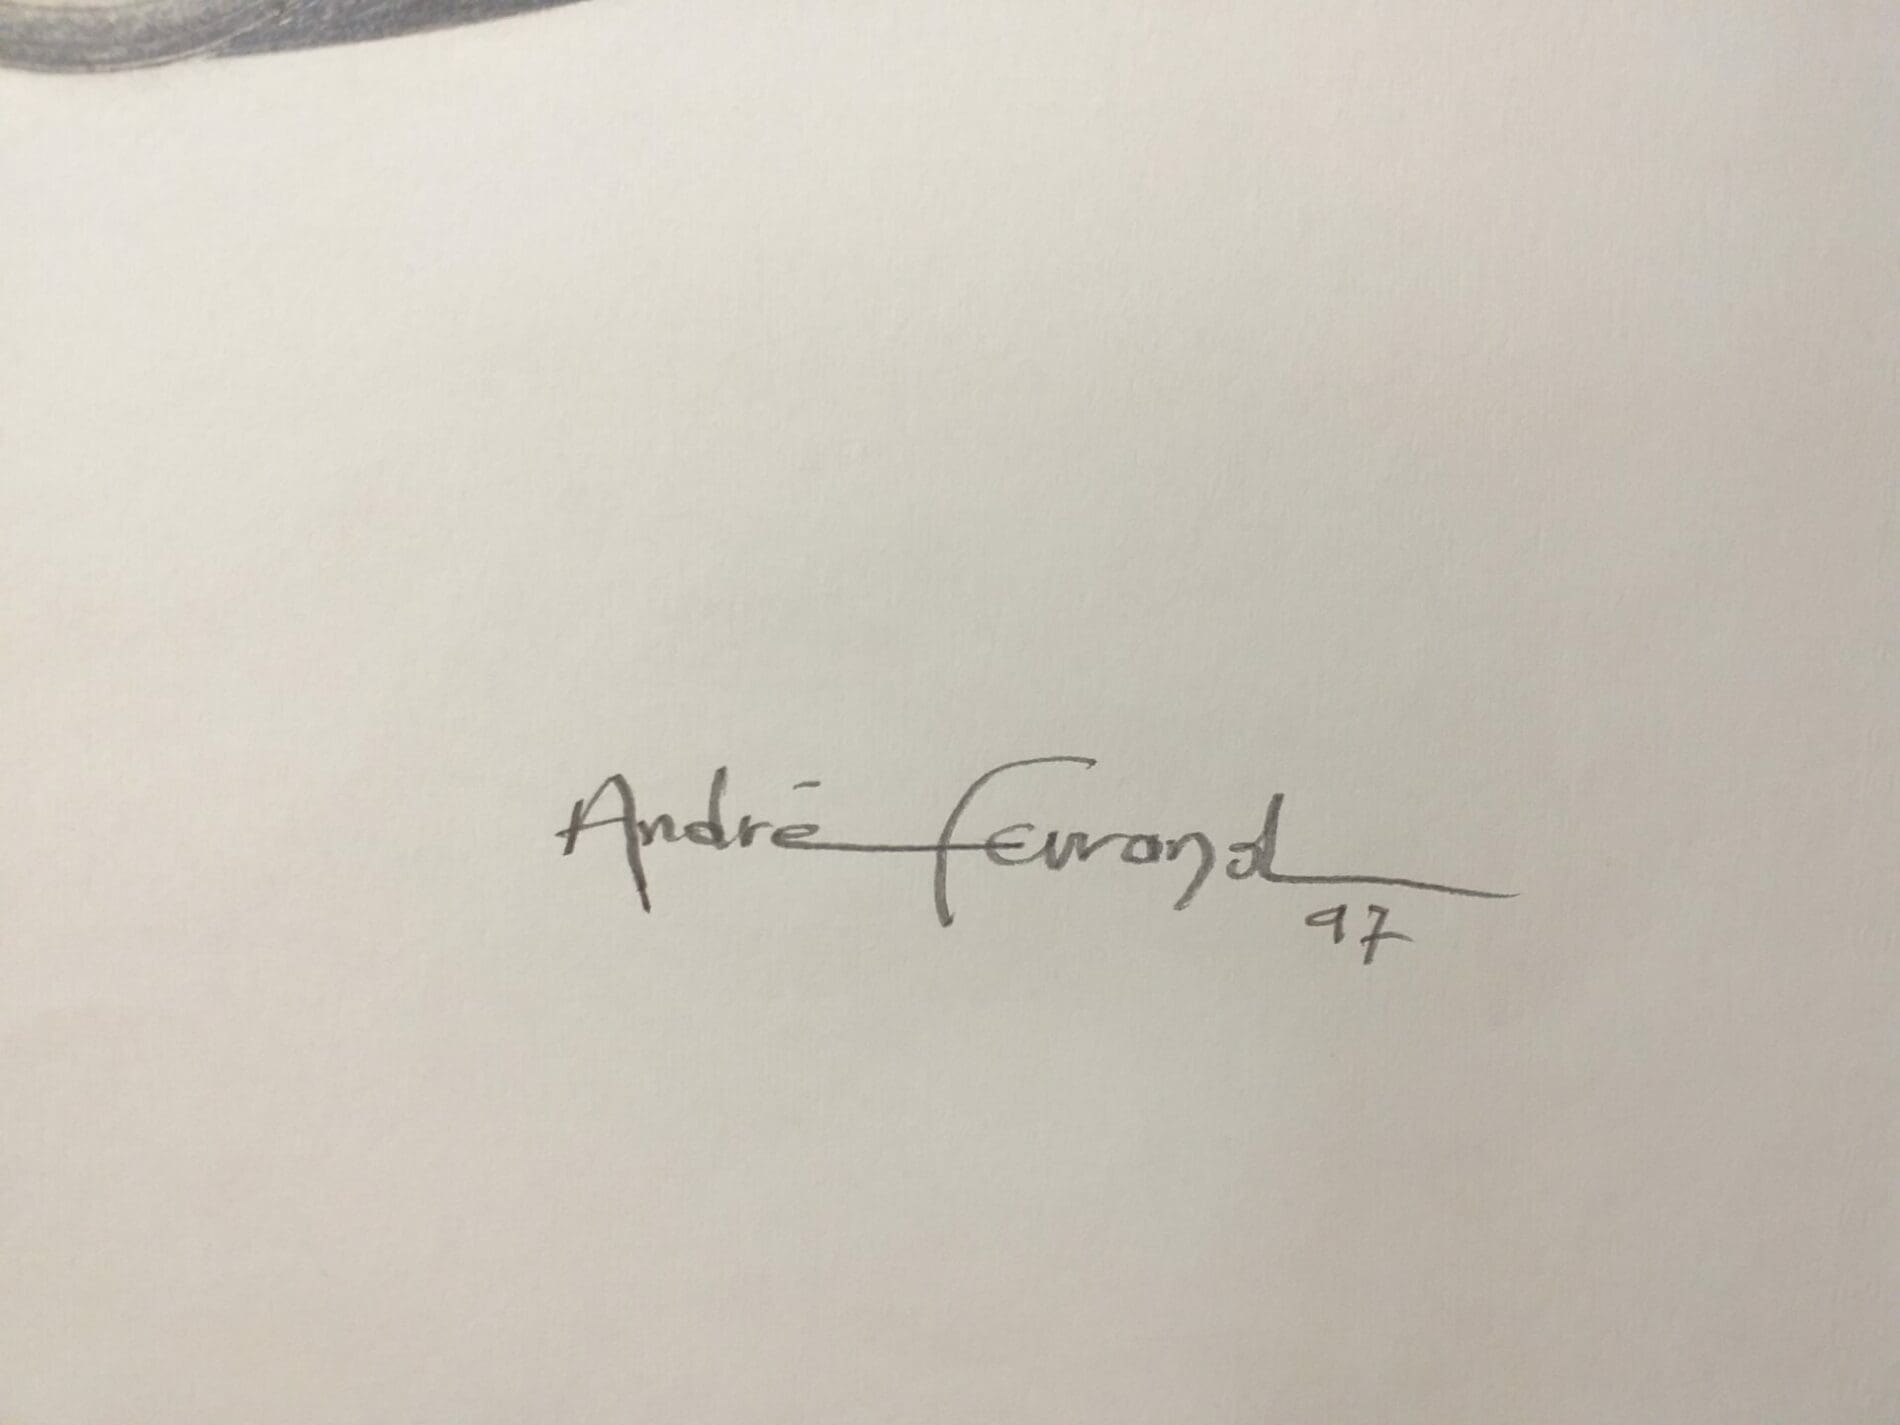 André Ferrand
97